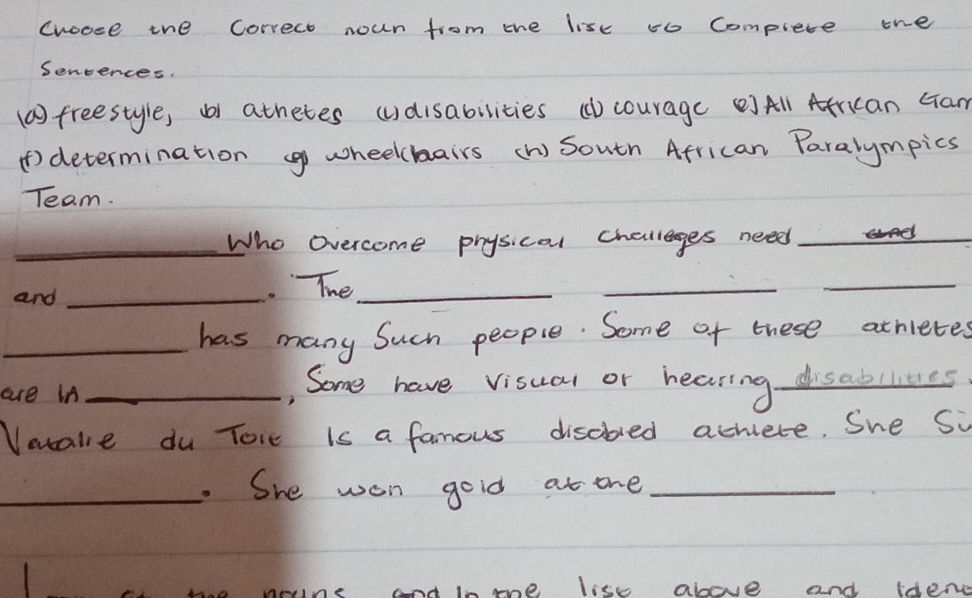 Choose the Correct noun from the list to Complete the
Sentences.
(a) freestyle, b) athetes (c) disabilities (d) courage e) All African Gam
(f) determination g) wheelchairs (h) South African Paralympics
Team.
____________ Who Overcome physical challeges need ____________
and ____________. The ____________ ____________ ____________
____________ has many Such people. Some of these athletes
are in ____________, Some have visual or hearing disabilities.
Natalie du Toit is a famous disabled athlete. She Si
____________. She won gold at the ____________
the nouns and in the list above and iden